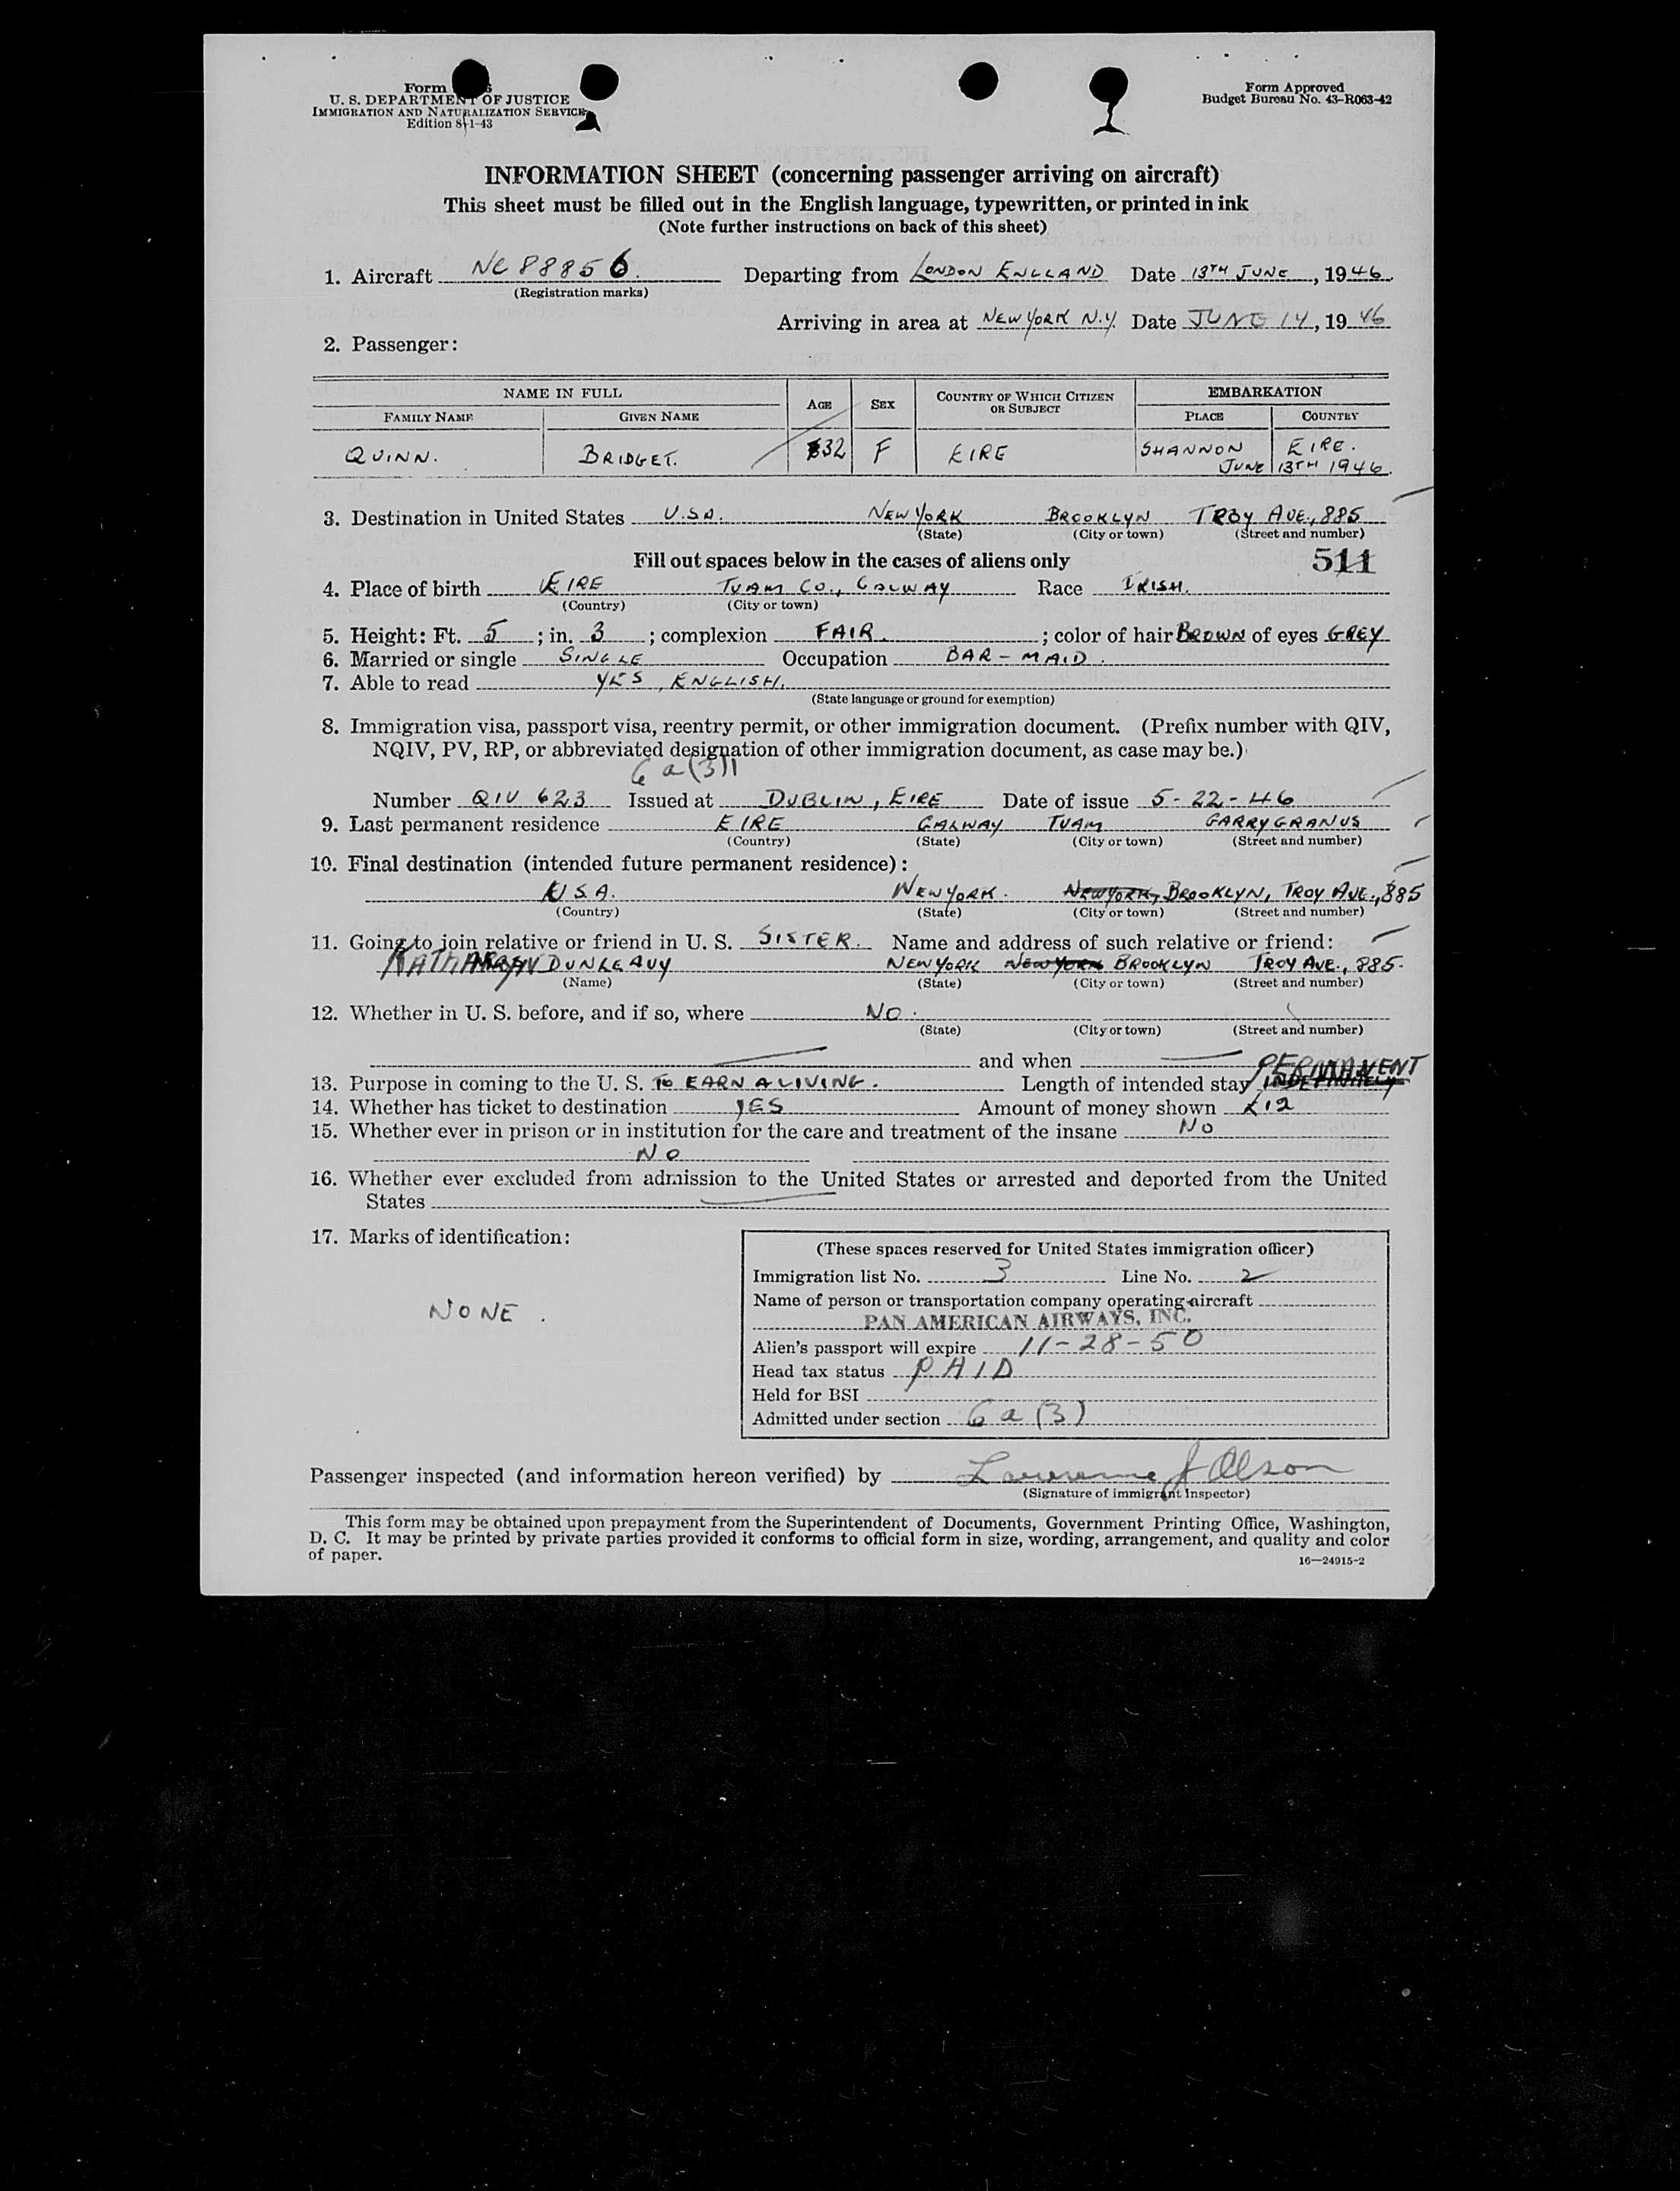 Form
U. S. DEPARTMENT OF JUSTICE
IMMIGRATION AND NATURALIZATION SERVICE
Edition 8-1-43
Form Approved
Budget Bureau No. 43-R063-42
INFORMATION SHEET (concerning passenger arriving on aircraft)
This sheet must be filled out in the English language, typewritten, or printed in ink
(Note further instructions on back of this sheet)
1. Aircraft NC 88856. Departing from LONDON ENGLAND Date 13TH JUNE, 1946.
(Registration marks)
Arriving in area at NEW YORK N.Y. Date JUNE 14, 1946
2. Passenger:
NAME IN FULL AGE SEX COUNTRY OF WHICH CITIZEN OR SUBJECT EMBARKATION
FAMILY NAME GIVEN NAME PLACE COUNTRY
QUINN. BRIDGET. 32 F EIRE SHANNON EIRE.
JUNE 13TH 1946.
3. Destination in United States U.S.A. NEW YORK BROOKLYN TROY AVE, 885
(State) (City or town) (Street and number)
Fill out spaces below in the cases of aliens only 511
4. Place of birth EIRE TUAM CO., GALWAY Race IRISH.
(Country) (City or town)
5. Height: Ft. 5; in. 3; complexion FAIR.; color of hair BROWN of eyes GREY
6. Married or single SINGLE Occupation BAR-MAID.
7. Able to read YES, ENGLISH.
(State language or ground for exemption)
8. Immigration visa, passport visa, reentry permit, or other immigration document. (Prefix number with QIV,
NQIV, PV, RP, or abbreviated designation of other immigration document, as case may be.)
6 a (3)
Number QIV 623 Issued at DUBLIN, EIRE Date of issue 5-22-46
9. Last permanent residence EIRE GALWAY TUAM GARRYGRANUS
(Country) (State) (City or town) (Street and number)
10. Final destination (intended future permanent residence):
U.S.A. NEW YORK. NEW YORK, BROOKLYN, TROY AVE., 885
(Country) (State) (City or town) (Street and number)
11. Going to join relative or friend in U. S. SISTER. Name and address of such relative or friend:
DUNLEAVY NEW YORK NEW YORK BROOKLYN TROY AVE., 885.
(Name) (State) (City or town) (Street and number)
12. Whether in U. S. before, and if so, where NO.
(State) (City or town) (Street and number)
and when
PERMANENT
13. Purpose in coming to the U. S. TO EARN A LIVING. Length of intended stay INDEFINITELY
14. Whether has ticket to destination YES Amount of money shown £12
15. Whether ever in prison or in institution for the care and treatment of the insane NO
NO
16. Whether ever excluded from admission to the United States or arrested and deported from the United
States
17. Marks of identification:
NONE.
(These spaces reserved for United States immigration officer)
Immigration list No. 3 Line No. 2
Name of person or transportation company operating aircraft
PAN AMERICAN AIRWAYS, INC.
Alien's passport will expire 11-28-50
Head tax status PAID
Held for BSI
Admitted under section 6 a (3)
Passenger inspected (and information hereon verified) by Lawrence J Olson
(Signature of immigrant inspector)
This form may be obtained upon prepayment from the Superintendent of Documents, Government Printing Office, Washington,
D. C. It may be printed by private parties provided it conforms to official form in size, wording, arrangement, and quality and color
of paper.
16—24915-2